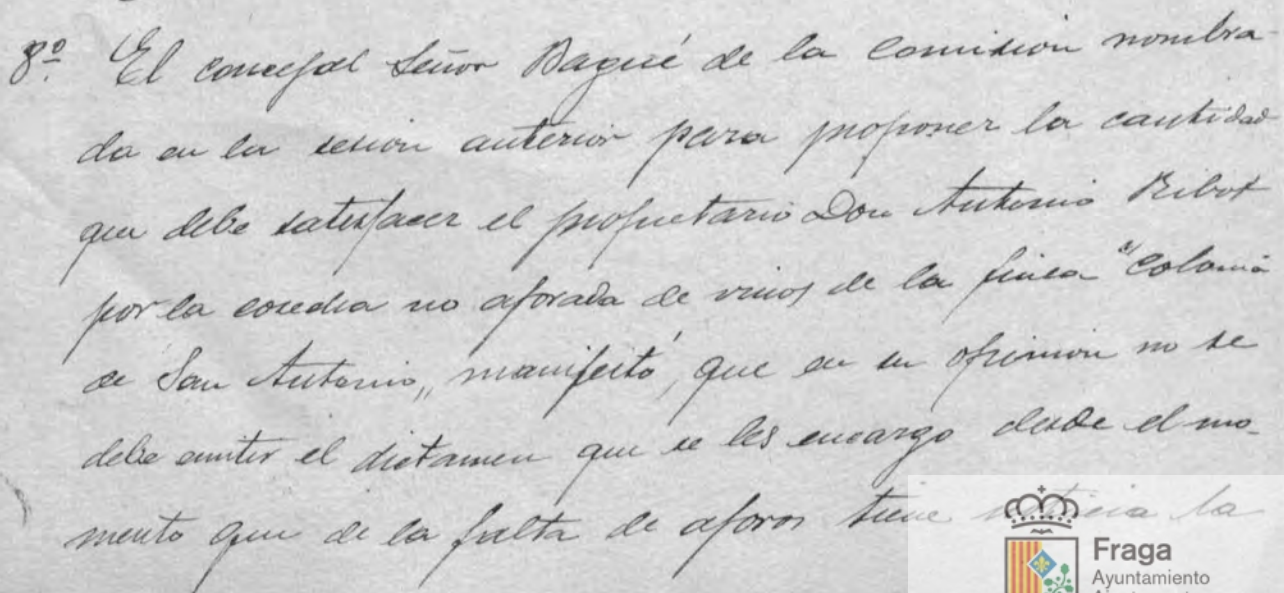 8º. El concejal Señor Bagué de la Comision nombra-
da en la sesion anterior para proponer la cantidad
que debe satisfacer el propietario Don Antonio Ribot
por la cosecha no aforada de vinos de la finca "Colonia
de San Antonio„ manifestó, que en su opinion no se
debe emitir el dictamen que se les encargo desde el mo-
mento que de la falta de aforos tiene noticia la
Fraga
Ayuntamiento